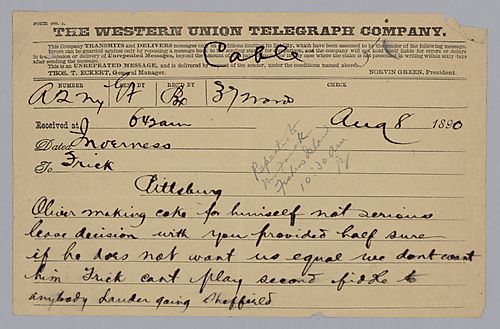 THE WESTERN UNION TELEGRAPH COMPANY.
This Company TRANSMITS and DELIVERS messages only on conditions limiting its liability, which have been assented to by the sender of the following message.
Errors can be guarded against only by repeating a message back to the sending station for comparison, and the company will not hold itself liable for errors or delays
in transmission or delivery of Unrepeated Messages, beyond the amount of tolls paid thereon, nor in any case where the claim is not presented in writing within sixty days
after sending the message.
This is an UNREPEATED MESSAGE, and is delivered by request of the sender, under the conditions named above.
THOS. T. ECKERT, General Manager. NORVIN GREEN, President.
Cable
NUMBER SENT BY REC'D BY CHECK
37 Words
Received at 642am Aug 8 1890
Dated Inverness
To Frick
Pittsburg
Repeated to
10:30 am
Oliver making cake for himself not serious
leave decision with you provided half sure
if he does not want us equal we dont want
him Frick cant play second fiddle to
anybody Lauder going Sheffield